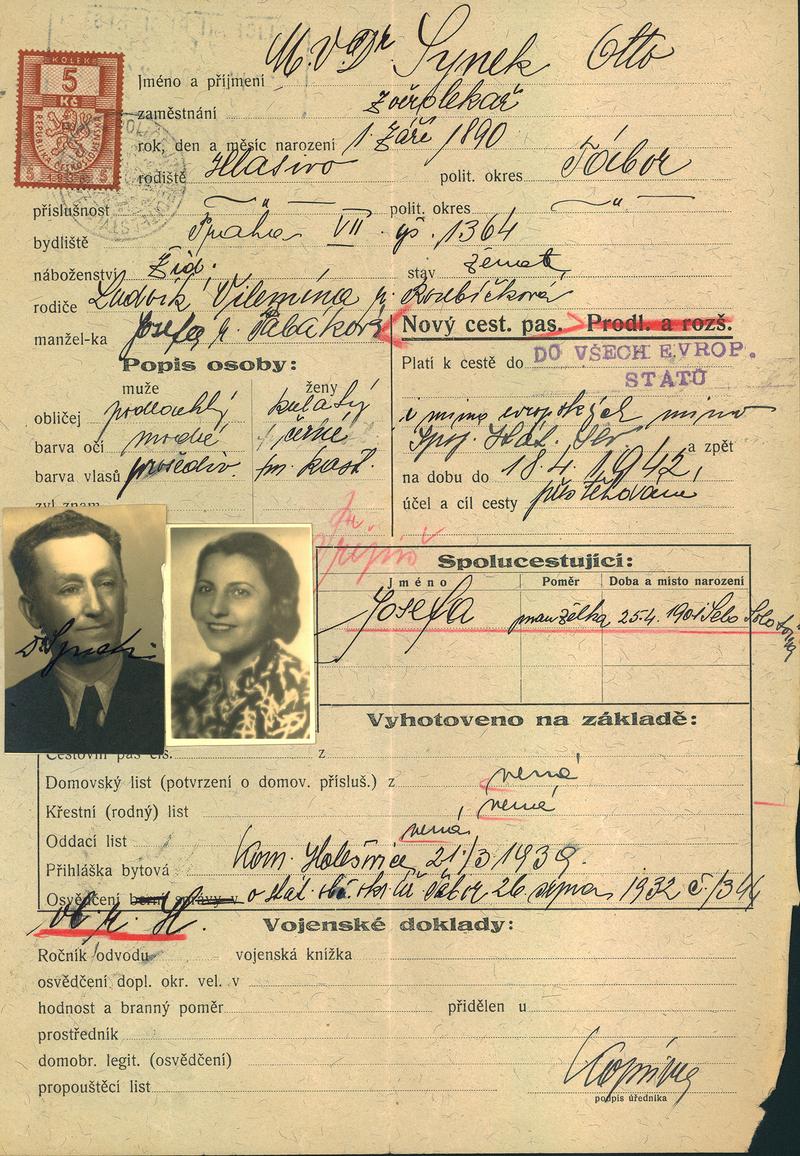 KOLEK
5
Kč
REPUBLIKA ČESKOSLOVENSKÁ
5 5
Jméno a příjmení M.V.Dr Synek Otto
zaměstnání zvěrolékař
rok, den a měsíc narození 1. září 1890
rodiště Hlasivo polit. okres Tábor
příslušnost — " — polit. okres — " —
bydliště Praha VII čp. 1364
náboženství žid. stav ženat
rodiče Ludvík, Vilemína r. Roubíčková
manžel-ka Josefa r. Tabáková
Nový cest. pas. Prodl. a rozš.
Popis osoby:
muže ženy
obličej podlouhlý kulatý
barva očí modré černé
barva vlasů prošediv. tm. kašt.
zvl. znam.
Platí k cestě do DO VŠECH EVROP.
STÁTŮ
i mimo evropských mimo
Spoj. Stát. a zpět
na dobu do 18.4.1942,
účel a cíl cesty přestěhování
Spolucestující:
Jméno Poměr Doba a místo narození
Josefa manželka 25.4. 1901
Dr Synek
Vyhotoveno na základě:
Cestovní pas čís. z
Domovský list (potvrzení o domov. přísluš.) z nemá
Křestní (rodný) list nemá
Oddací list nemá
Přihláška bytová Kom. Holešovice 21/3 1939.
Osvědčení berní správy v o stát. obč. okr. úř. Tábor 26. srpna 1932 č./
Vojenské doklady:
Ročník odvodu vojenská knížka
osvědčení dopl. okr. vel. v
hodnost a branný poměr přidělen u
prostředník
domobr. legit. (osvědčení)
propouštěcí list
podpis úředníka